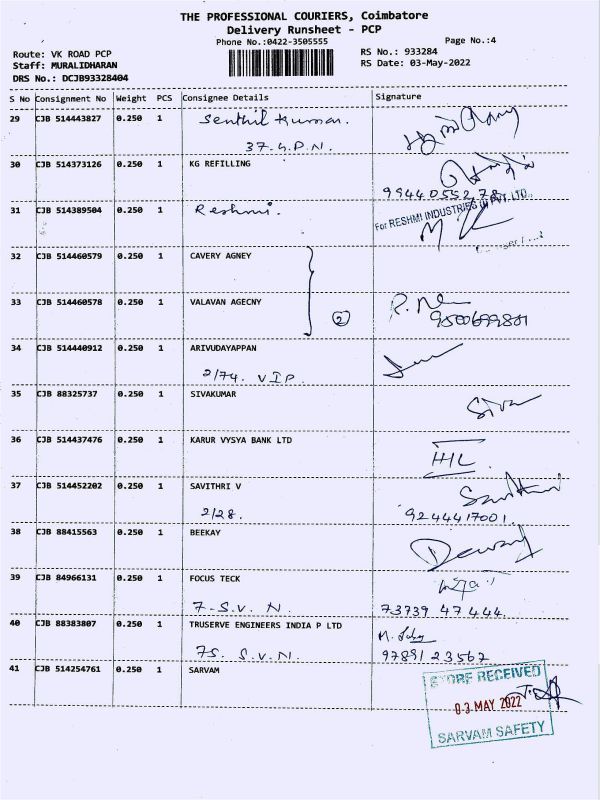 THE PROFESSIONAL COURIERS, Coimbatore
Delivery Runsheet - PCP
Phone No.:0422-3505555
Page No.:4
Route: VK ROAD PCP
RS No.: 933284
Staff: MURALIDHARAN
RS Date: 03-May-2022
DRS No.: DCJB93328404
S No Consignment No Weight PCS Consignee Details Signature
29 CJB 514443827 0.250 1 Senthil Kumar.
37.G.P.N.
30 CJB 514373126 0.250 1 KG REFILLING
31 CJB 514389504 0.250 1 Reshmi.
For RESHMI INDUSTRIES (I) PVT. LTD.,
32 CJB 514460579 0.250 1 CAVERY AGNEY
33 CJB 514460578 0.250 1 VALAVAN AGECNY
2
34 CJB 514440912 0.250 1 ARIVUDAYAPPAN
2/74. VIP.
35 CJB 88325737 0.250 1 SIVAKUMAR Siva
36 CJB 514437476 0.250 1 KARUR VYSYA BANK LTD
37 CJB 514452202 0.250 1 SAVITHRI V
2/28. 9244417001.
38 CJB 88415563 0.250 1 BEEKAY
39 CJB 84966131 0.250 1 FOCUS TECK
7-S.V.N. 73739 47444.
40 CJB 88383807 0.250 1 TRUSERVE ENGINEERS INDIA P LTD
75. S.V.N. 9789123567
41 CJB 514254761 0.250 1 SARVAM
STORE RECEIVED
03 MAY 2022
SARVAM SAFETY